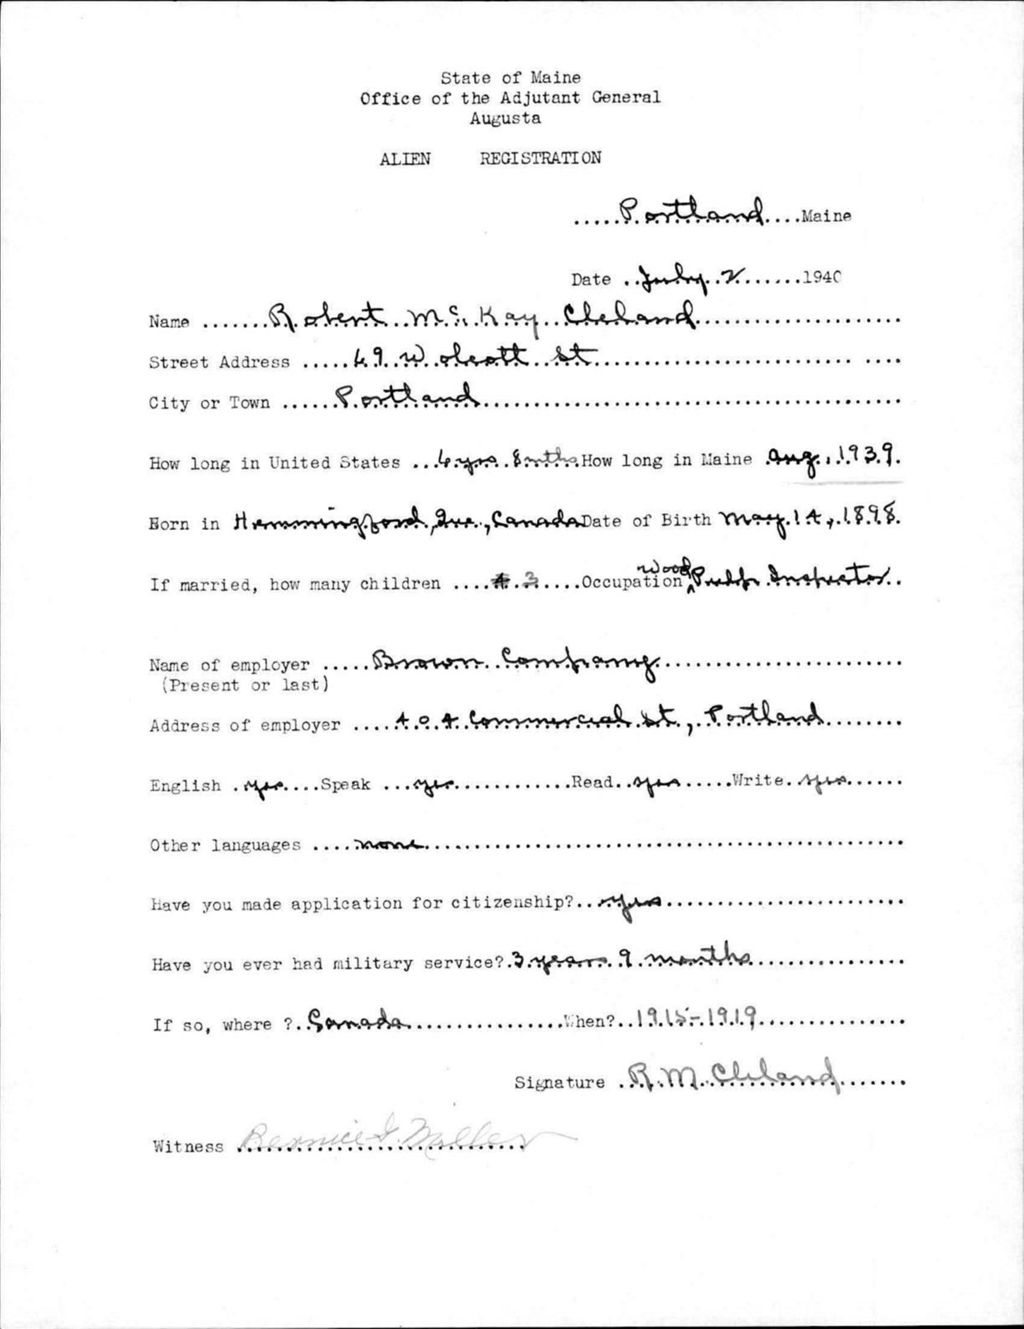 State of Maine
Office of the Adjutant General
Augusta
ALIEN REGISTRATION
.....Portland....Maine
Date ..July 2......1940
Name .......Robert McKay Cleland....................
Street Address .....69 Wolcott St..............................
City or Town ......Portland........................................
How long in United States ...6 yrs 8 mths.How long in Maine .Aug., 1939.
Born in Hemmingford, Que., Canada Date of Birth May 14, 1898.
If married, how many children ....4 3.....Occupation Wood Pulp Inspector..
Name of employer .....Brown Company.......................
(Present or last)
Address of employer ....404 Commercial St., Portland........
English .yes....Speak ...yes............Read..yes......Write..yes......
Other languages ....none...........................................
Have you made application for citizenship?...yes.......................
Have you ever had military service?.3 years 9 months..............
If so, where ?..Canada...............When?..1915-1919.............
Signature .R. M. Cleland.......
Witness Bernice I. Miller